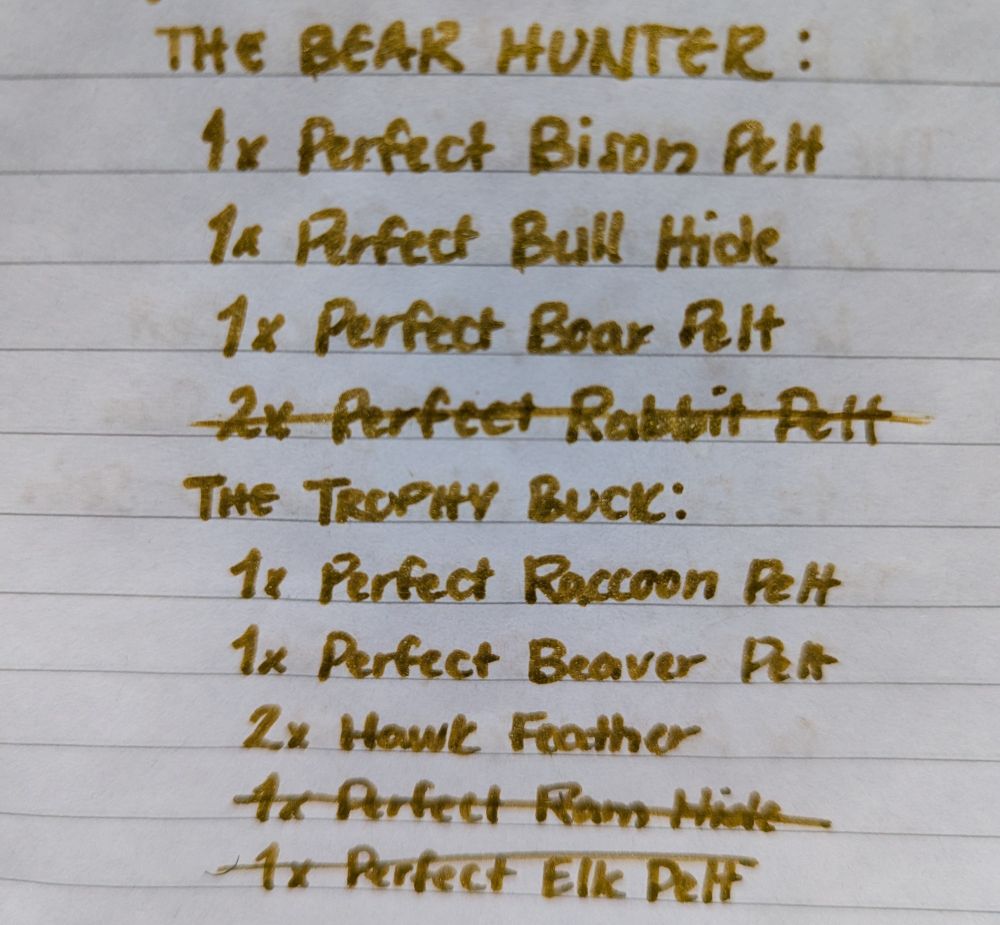 THE BEAR HUNTER:
1x Perfect Bison Pelt
1x Perfect Bull Hide
1x Perfect Boar Pelt
2x Perfect Rabbit Pelt
THE TROPHY BUCK:
1x Perfect Raccoon Pelt
1x Perfect Beaver Pelt
2x Hawk Feather
1x Perfect Ram Hide
1x Perfect Elk Pelt